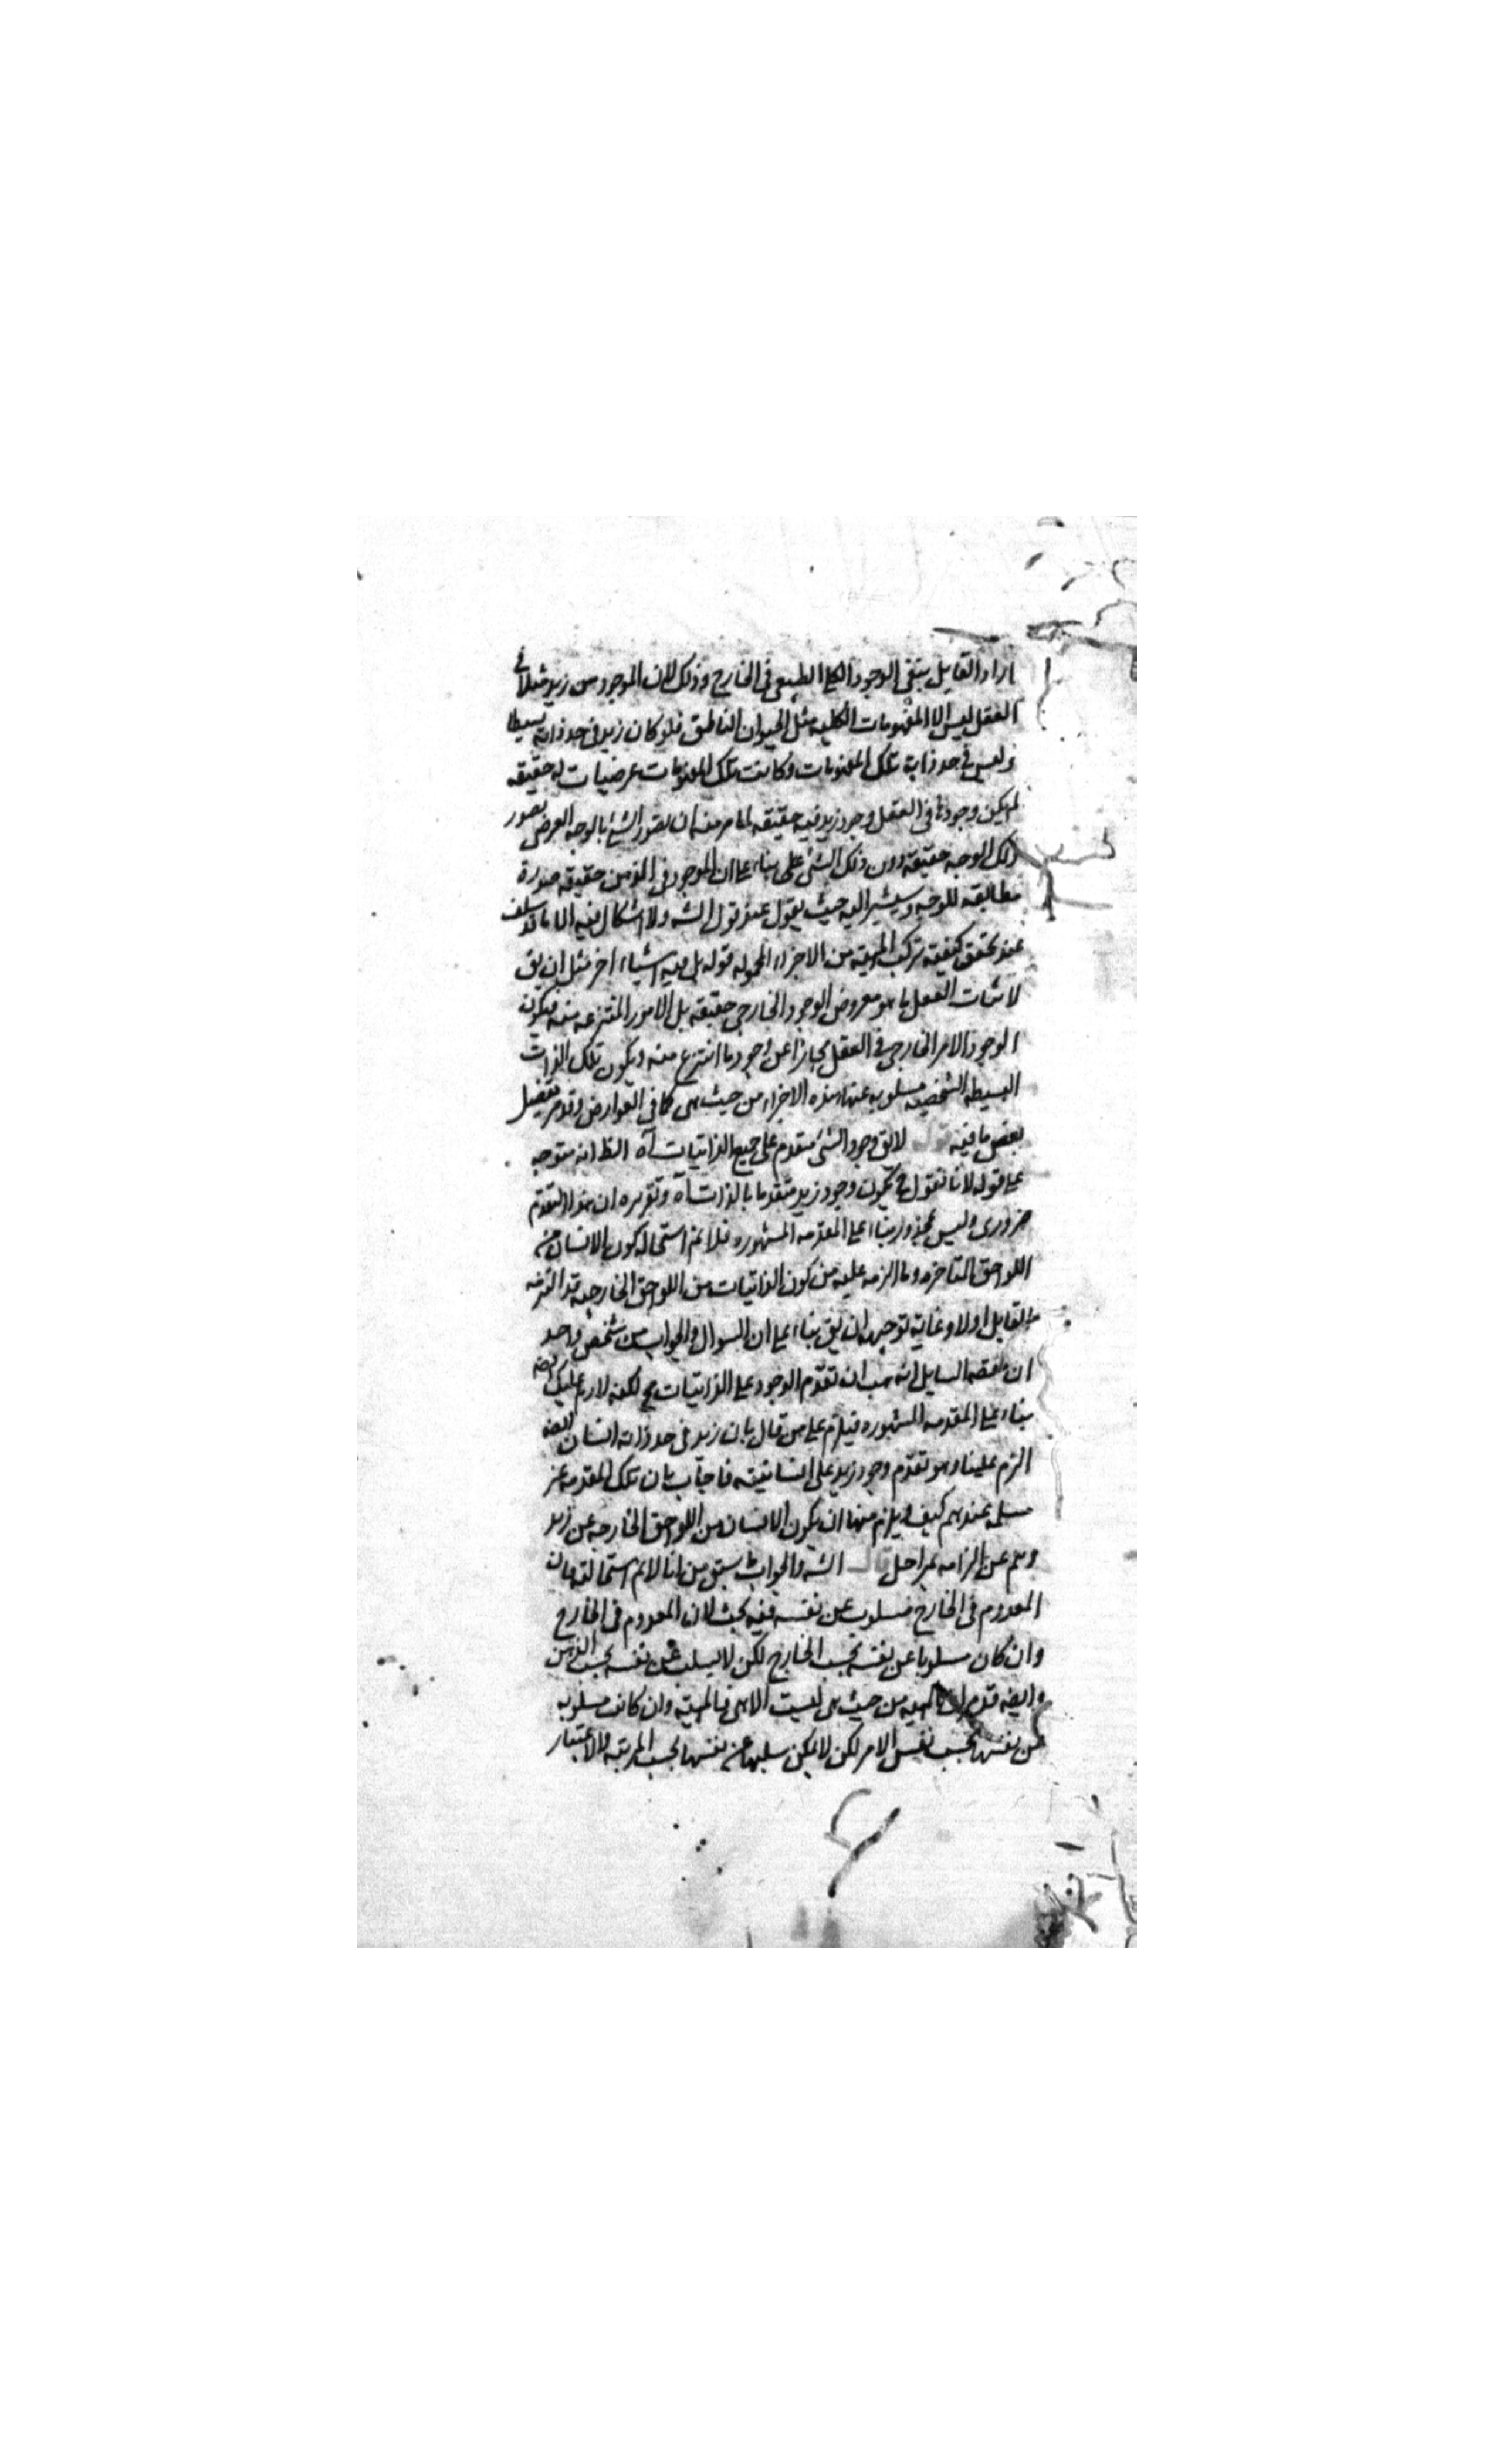 اراد القايل بنفى الوجود الكلى الطبيعى فى الخارج وذلك لان الموجود من زيد مثلا فى
العقل ليس الا المفهومات الكلية مثل الحيوان الناطق فلو كان زيد فى حد ذاته بسيطا
وليس فى حد ذاته تلك المفهومات وكانت تلك المفهومات عرضيات له حقيقة
لم يكن وجودها فى العقل وجود زيد فيه حقيقة لما مر منه ان تصور الشئ بالوجه العرضى تصور
ذلك الوجه حقيقة دون ذلك الشئ على بناء على ان الموجود فى الذهن حقيقة صورة
مطابقة للوجه وسيشير اليه حيث يقول عند قول الشه ولا اشكال فيه الا ما قد سلف
عند تحقق كيفية تركب المهية من الاجزاء المحمولة قوله بل فيه اشياء اخر مثل ان يق
لا شات العقل ما هو معروض الوجود الخارجى حقيقة بل الامور المنتزعة منه فيكون
الوجود الامر الخارجى فى العقل مجازا عن وجود ما انتزع منه ويكون تلك الذات
البسيطة الشخصية مسلوبة عنها هذه الاجزاء من حيث هى كما فى العوارض وقد مر تفصيل
بعض ما فيه قوله لا يق وجود الشئ متقدم على جميع الذاتيات آه الظ انه متوجه
على قوله لانا نقول ح يكون وجود زيد متقدما بالذات آه وتقريره ان هذا التقدم
ضرورى وليس بمحذور بناء على المقدمة المشهورة فلا نم استحالة كون الانسان من
اللواحق المتاخرة وما الزمه عليه من كون الذاتيات من اللواحق الخارجية قد التزمه
القايل اولا وغاية توجيهه ان يق بناء على ان السوال والجواب من شخص واحد
ان مقصد السايل انه هب ان تقدم الوجود على الذاتيات مح لكنه لازم عليك ايضه
بناء على المقدمة المشهورة فيلزم على من قال بان زيد فى حد ذاته انسان ايضه
الزم علينا وهو تقدم وجود زيد على انسانيته فاجاب بان تلك المقدمة غير
مسلمة عندهم كيف ويلزم منها ان يكون الانسان من اللواحق الخارجة عن زيد
وهم عن الزامه بمراحل قال الشه والجواب ما سبق من انا لا نم استحالته فان
المعدوم فى الخارج مسلوب عن نفسه فيه بحث لان المعدوم فى الخارج
وان كان مسلوبا عن نفسه بحسب الخارج لكن لا يسلب عن نفسه بحسب الذهن
وايضه قد مر ان المهية من حيث هى ليست الا هى فالمهية وان كانت مسلوبة
عن نفسها بحسب نفس الامر لكن لا يمكن سلبها عن نفسها بحسب المرتبة والاعتبار